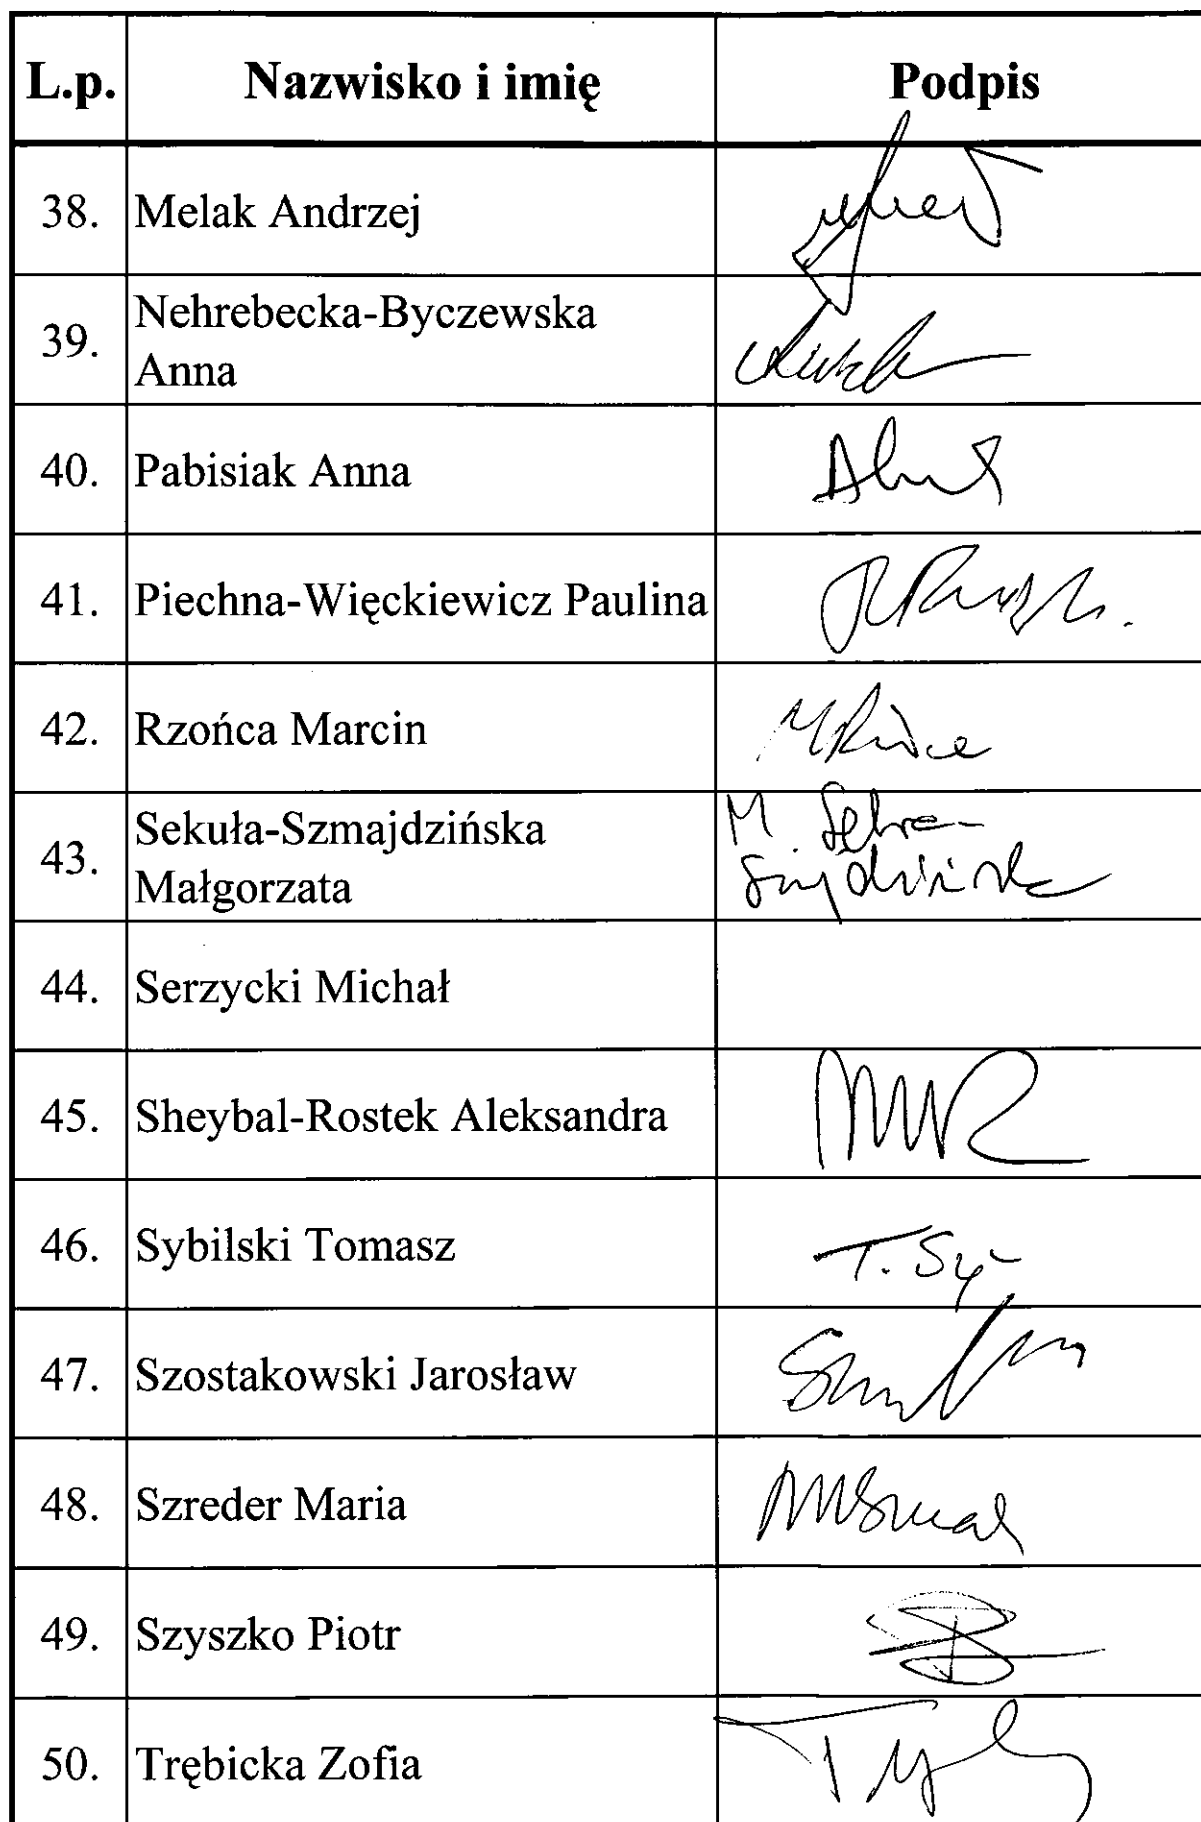 L.p. Nazwisko i imię Podpis
38. Melak Andrzej
39. Nehrebecka-Byczewska
Anna
40. Pabisiak Anna
41. Piechna-Więckiewicz Paulina
42. Rzońca Marcin
43. Sekuła-Szmajdzińska
Małgorzata
44. Serzycki Michał
45. Sheybal-Rostek Aleksandra
46. Sybilski Tomasz T. Sy
47. Szostakowski Jarosław
48. Szreder Maria
49. Szyszko Piotr
50. Trębicka Zofia